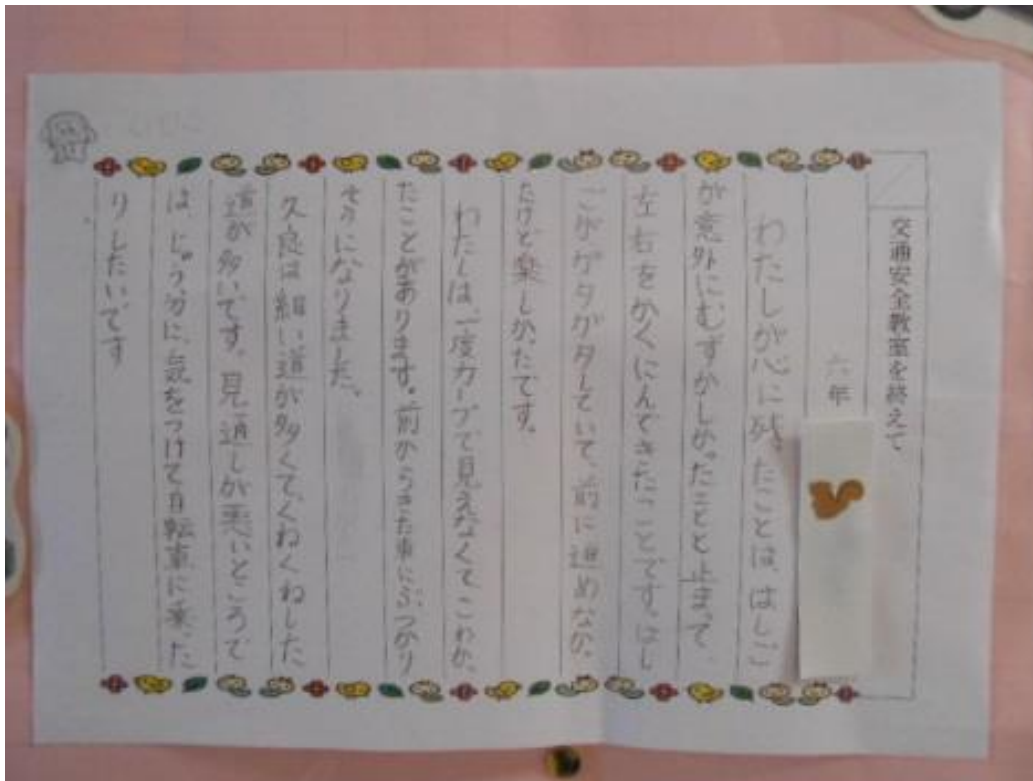 交通安全教室を終えて
六年
わたしが心に残ったことは、はしご
が意外にむずかしかったことと止まって、
左右をかくにんできたことです。はし
ごがガタガタしていて、前に進めなかっ
たけど楽しかったです。
わたしは、一度カーブで見えなくてこわかっ
たことがあります。前からきた車にぶつかり
そうになりました。
久良は細い道が多くて、くねくねした
道が多いです。見通しが悪いところで
は、じゅう分に、気をつけて自転車に乗った
りしたいです